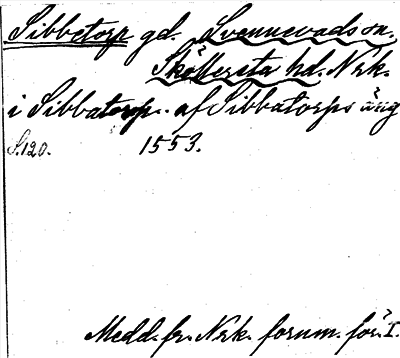 Sibbetorp gd. Svennevads sn.
Sköllersta hd. Nrk.
i Sibbatorp.. af Sibbatorps äng
S.120. 1553.
Medd. fr. Nrk. fornm. för. I.